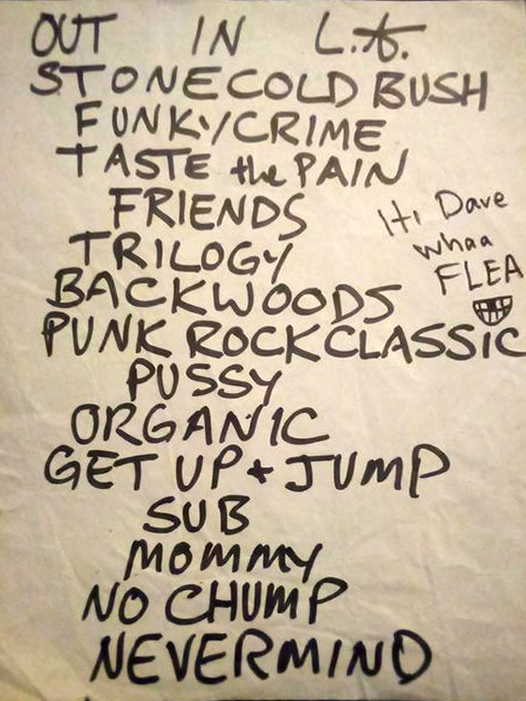 OUT IN L.A.
STONE COLD BUSH
FUNKY/CRIME
TASTE the PAIN
FRIENDS
Hi Dave
whaa
FLEA
TRILOGY
BACKWOODS
PUNK ROCK CLASSIC
PUSSY
ORGANIC
GET UP + JUMP
SUB
MOMMY
NO CHUMP
NEVERMIND